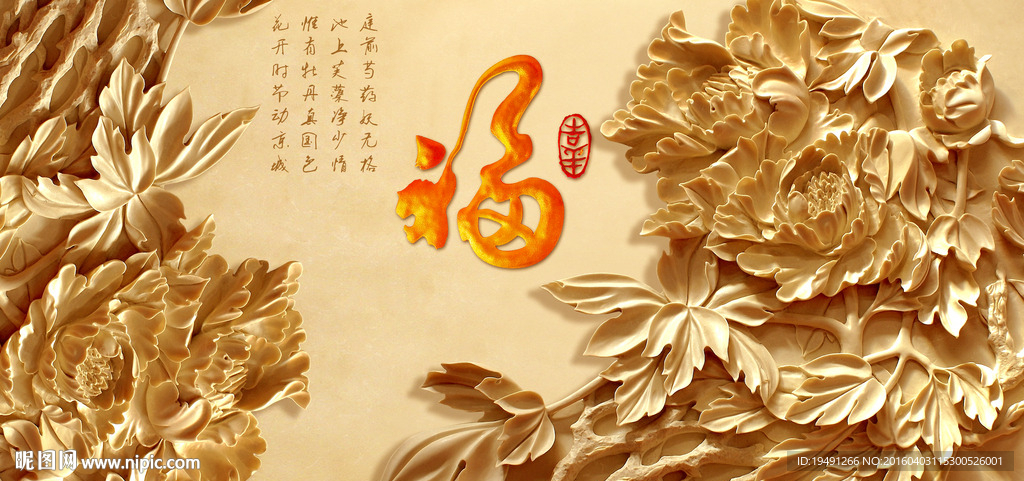 庭前芍药妖无格
池上芙蕖净少情
惟有牡丹真国色
花开时节动京城
福
昵图网 www.nipic.com
ID:19491266 NO:20160403115300526001